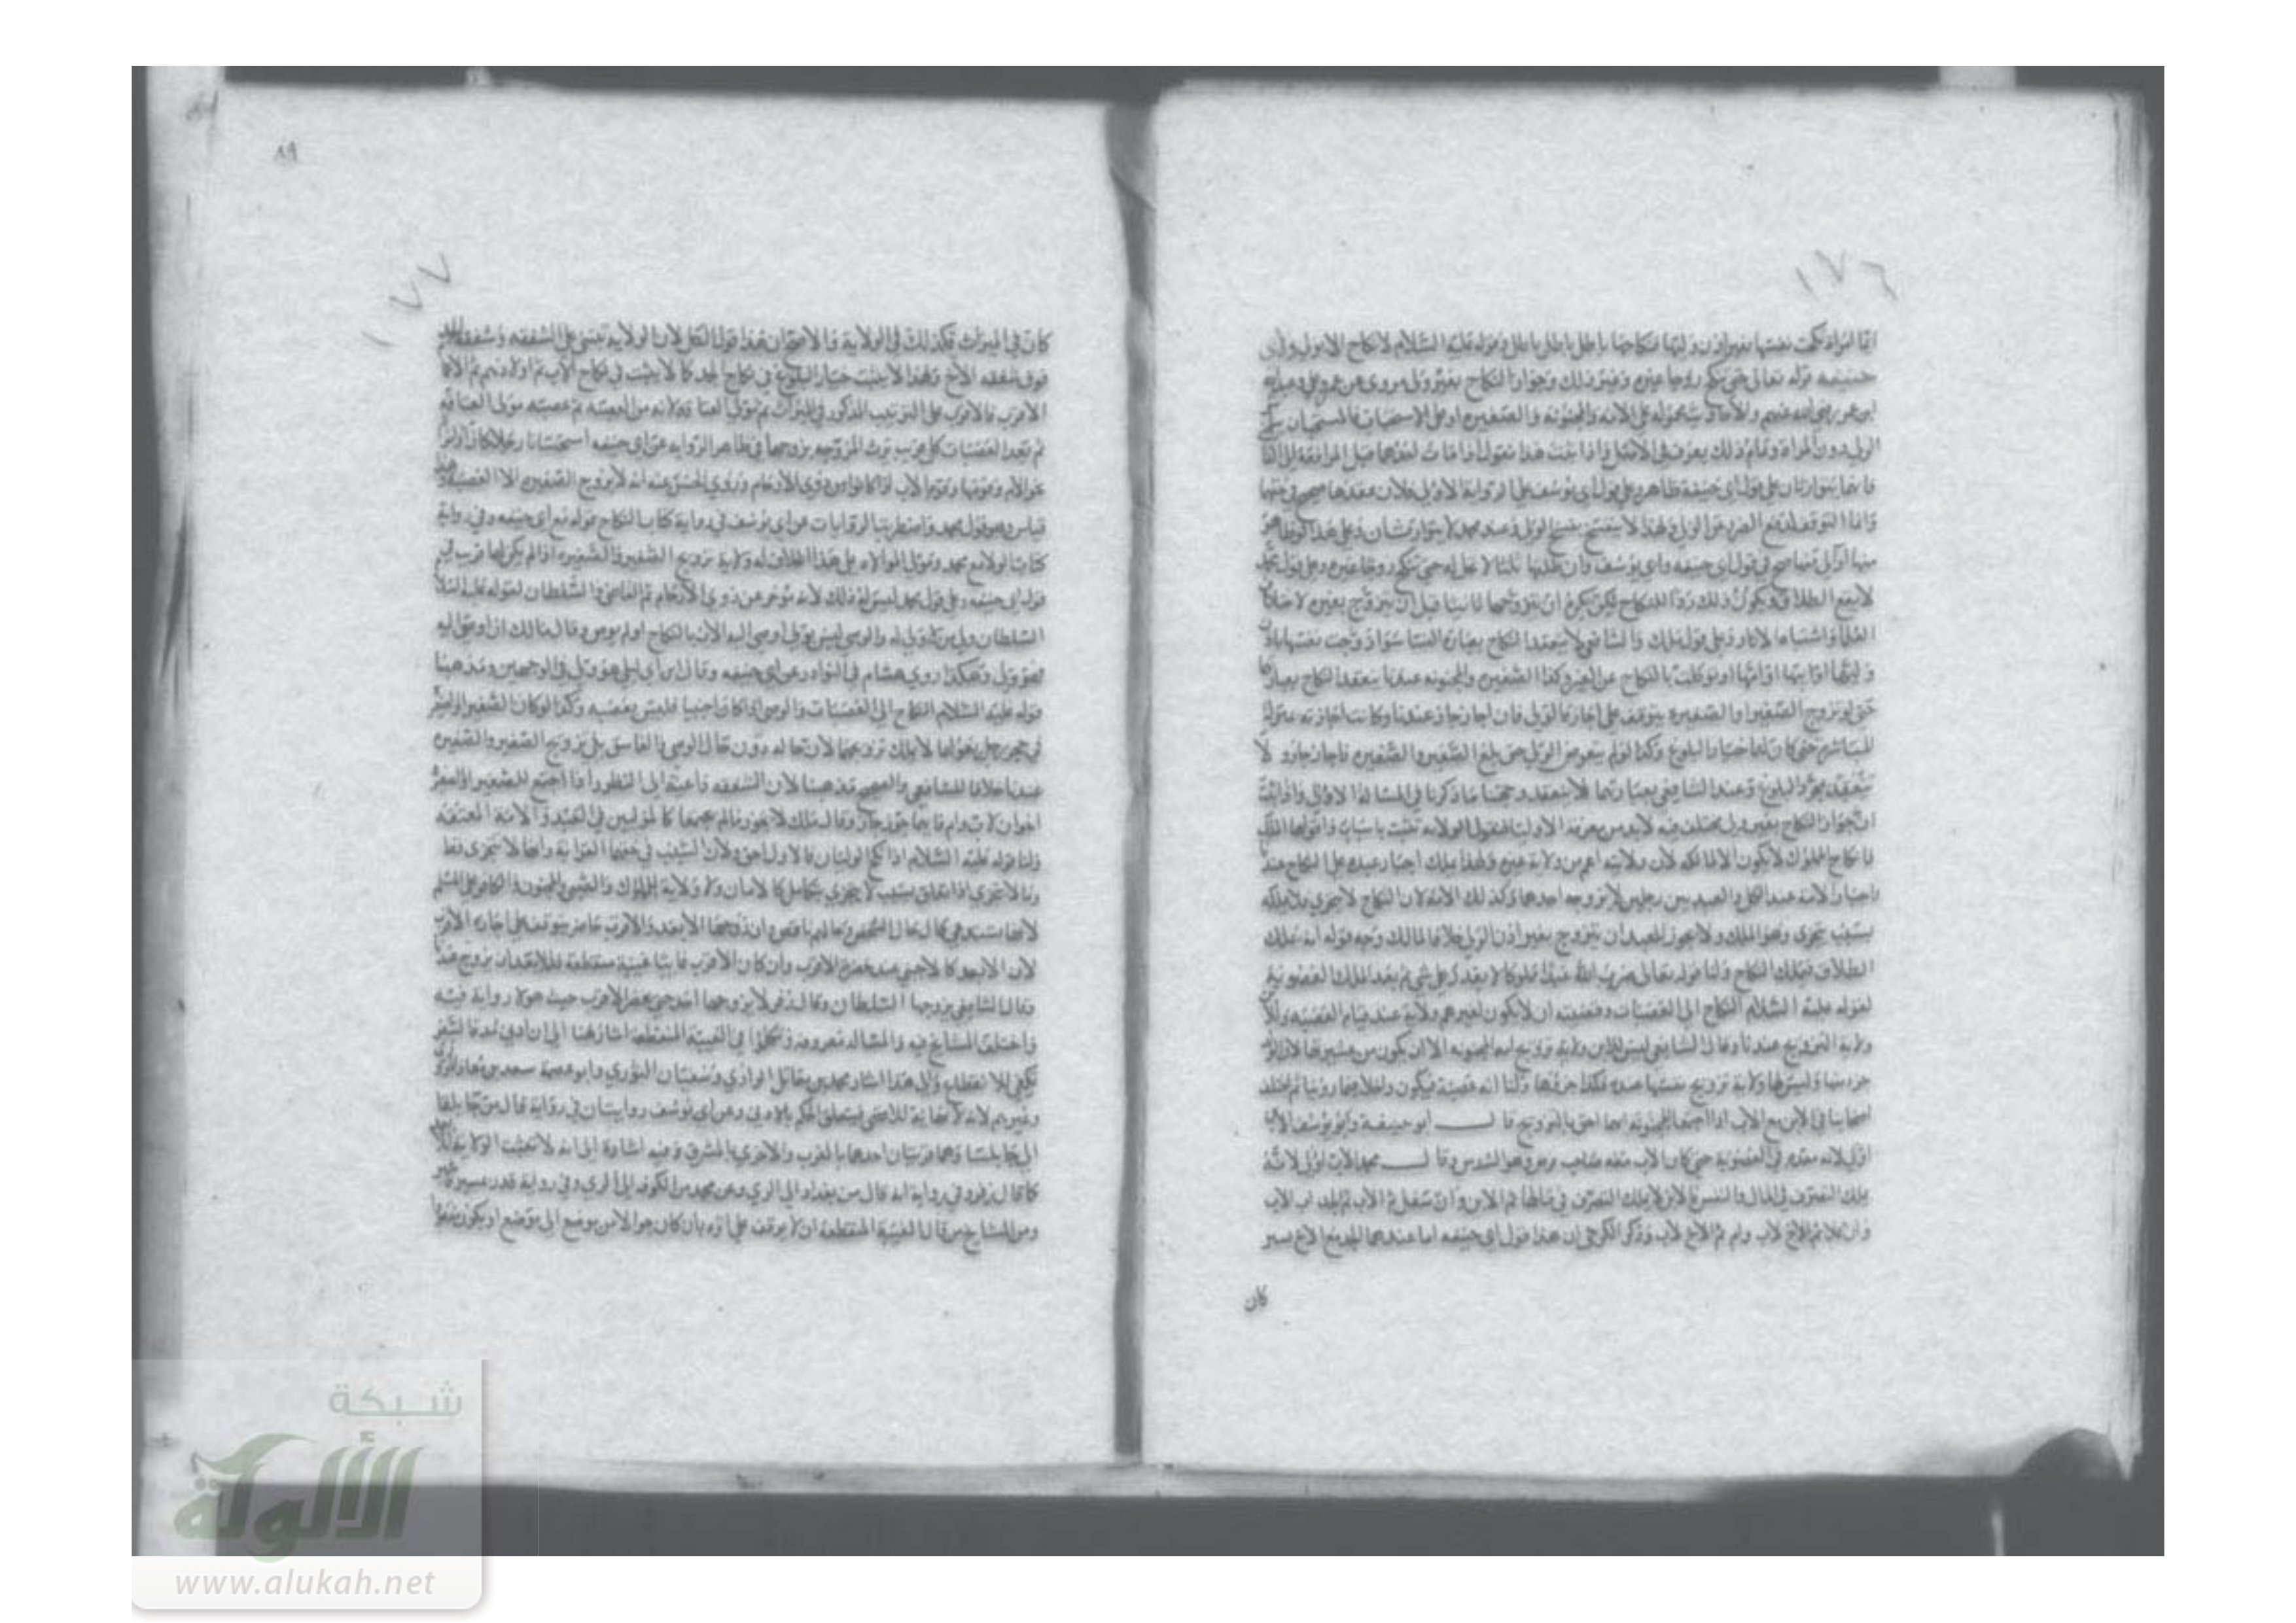 ١٧٦
ايما امراة نكحت نفسها بغير اذن وليها فنكاحها باطل باطل باطل وقوله عليه السلام لا نكاح الا بولي ولابي
حنيفه قوله تعالى حتى تنكح زوجا غيره وغير ذلك وجواز النكاح بغير ولي مروى عن عمر وعلي وعبدالله
ابن عمر رضي الله عنهم والاحاديث محموله على الامه والمجنونه والصغيره او على الاستحباب فالمستحب ان
الولي دون المراة وتمام ذلك يعرف في الاصل واذا ثبت هذا نقول اذا مات احدهما قبل المرافعة الى القاضي
فانهما يتوارثان على قول ابي حنيفة ظاهر وعلى قول ابي يوسف على الرواية الاولى فلان عقدها صحيح في حقها
وانما التوقف لدفع الضرر عن الولي ولهذا لا ينفسخ بفسخ الولي وعند محمد لا يتوارثان وعلى هذا لو ظاهر
منها او آلى منها صح في قول ابي حنيفه وابي يوسف وان طلقها ثلثا لا تحل له حتى تنكح زوجا غيره وعلى قول محمد
لا يقع الطلاق ويكون ذلك ردا للنكاح لكن يكره ان يتزوجها ثانيا قبل ان يتزوج بغيره لاختلاف
العلما واشتباه الاثار وعلى قول مالك والشافعي لا ينعقد النكاح بعبارة النسا سوا زوجت نفسها باذن
وليها او ابنتها او امتها او توكلت بالنكاح عن الغير وكذا الصغيره والمجنونه عندنا ينعقد النكاح بعبارتها
حتى لو تزوج الصغير او الصغيره يتوقف على اجازة الولي فان اجاز جاز عندنا وكانت اجازته بمنزلة
المباشره حتى كان لهما خيار البلوغ وكذا لو لم يتعرض الولي حتى بلغ الصغير والصغيره فاجاز جاز ولا
ينعقد بمجرد البلوغ وعند الشافعي بعبارتهما لا ينعقد وحجتنا ما ذكرنا في المسالة الاولى واذا ثبت
ان جواز النكاح بغير ولي مختلف فيه لابد من معرفة الاوليا فنقول الولاية تثبت باسباب واقواها الملك
فانكاح المملوك لا يكون الا لمالكه لان ولايته اعم من ولاية غيره ولهذا يملك اجبار عبده على النكاح عندنا
واجبار الامه عند الكل والعبد بين رجلين لا يزوجه احدهما وكذلك الامة لان النكاح لا يتجزى فلا يملكه
بسبب يتجزى وهو الملك ولا يجوز للعبد ان يتزوج بغير اذن الولي خلافا لمالك وجه قوله انه يملك
الطلاق فيملك النكاح ولنا قوله تعالى ضرب الله عبدا مملوكا لا يقدر على شي ثم بعد الملك العصوبة
لقوله عليه السلام النكاح الى العصبات وقضيته ان لا يكون لغيرهم ولاية عند قيام العصبه وللابن
ولاية التزويج عندنا وقال الشافعي ليس للابن ولاية تزويج امه المجنونه الا ان يكون من عشيرتها لان الولد
جزء منها وليس لها ولاية تزويج نفسها عنده فكذا جزؤها ولنا انه عصبة فيكون داخلا فيما روينا ثم اختلف
اصحابنا في الابن مع الاب اذا اجتمعا للمجنونه ايهما احق بالتزويج قال ابو حنيفة وابو يوسف الابن
اولى لانه مقدم في العصوبة حتى كان الاب معه صاحب فرض وهو السدس وقال محمد الاب اولى لانه
يملك التصرف في المال والنفس والابن لا يملك التصرف في مالها ثم الابن وان سفل ثم الاب ثم الجد اب الاب
وان علا ثم الاخ لاب وام ثم الاخ لاب وذكر الكرخي ان هذا قول ابي حنيفه اما عندهما الجد مع الاخ
كان
٨٩
١٧٧
كان في الميراث فكذلك في الولاية والاصح ان هذا قول الكل لان الولاية تبتنى على الشفقه وشفقة الجد
فوق شفقه الاخ ولهذا لا يثبت خيار البلوغ في نكاح الجد كما لا يثبت في نكاح الاب ثم اولادهم ثم
الاقرب فالاقرب على الترتيب المذكور في الميراث ثم مولى العتاقه لانه من العصبه ثم عصبه مولى العتاقه
ثم بعد العصبات كل قريب يرث المزوجه يزوجها في ظاهر الروايه عن ابي حنيفه استحسانا رجلا كان او امراة
نحو الام وقومها وقوم الاب اذا كانوا من ذوي الارحام وروي الحسن عنه انه لا يزوج الصغيره الا العصبه وهذا
قياس وهو قول محمد واضطربت الروايات عن ابي يوسف في رواية كتاب النكاح قوله مع ابي حنيفه وفي رواية
كتاب الولا مع محمد ومولى الموالاه على هذا الخلاف له ولاية تزويج الصغير والصغيره اذا لم يكن لها قريب في
قول ابي حنيفه وعلى قول محمد ليس له ذلك لانه مؤخر عن ذوي الارحام ثم القاضي والسلطان لقوله عليه السلام
السلطان ولي من لا ولي له والوصي ليس بولي اوصى اليه الاب بالنكاح اولم يوص وقال مالك ان اوصى اليه
فهو ولي وهكذا روي هشام في النوادر عن ابي حنيفه وقال ابن ابي ليلى هو ولي في الوجهين ومذهبنا
قوله عليه السلام النكاح الى العصبات والوصي اذا كان اجنبيا فليس بعصبه وكذا لو كان الصغير او الصغيرة
في حجر رجل يعولهما لا يملك تزويجهما لان حاله دون حال الوصي والفاسق يلي تزويج الصغير والصغيره
عندنا خلافا للشافعي والصحيح مذهبنا لان الشفقه داعية الى النظر واذا اجتمع للصغير او الصغيره
اخوان لاب وام فايهما زوج جاز وقال مالك لا يجوز ما لم يجمعا كالموليين في العبد والامة المعتقه
ولنا قوله عليه السلام اذا نكح الوليان فالاول احق ولان السبب في حقهما القرابة وانها لا تتجزى قط
وما لا يتجزى اذا تعلق بسبب لا يتجزى يتكامل كالامان ولا ولاية للمملوك والصبي والمجنون والكافر على المسلم
لان الابعد كالاجنبي عند حضرة الاقرب وان كان الاقرب غايبا غيبة منقطعة فللابعد ان يزوج عندنا
وقال الشافعي يزوجها السلطان وقال زفر لا يزوجها احد حتى يحضر الاقرب حيث هو لا رواية فيه
واختلف المشايخ فيه والمسالة معروفه وتكلموا في الغيبة المنقطعه اشار هنا الى ان ادنى مدة السفر
تكفي للانقطاع والى هذا اشار محمد بن مقاتل الرازي وسفيان الثوري وابو عصمة سعد بن معاذ المروزي
وغيرهم لانه لا نهاية للاقصى فيتعلق الحكم بالادنى وعن ابي يوسف روايتان في رواية قال من جابلقا
الى جابلسا وهما قريتان احدهما بالمغرب والاخرى بالمشرق وفيه اشارة الى انه لا تثبت الولاية للابعد
كما قال زفر وفي رواية انه قال من بغداد الى الري وعن محمد من الكوفه الى الري وفي رواية قدر مسيرة
ومن المشايخ من قال الغيبة المنقطعة ان لا يوقف على اثره بان كان جوالا من موضع الى موضع او يكون مفقودا
شبكة
الألوكة
www.alukah.net